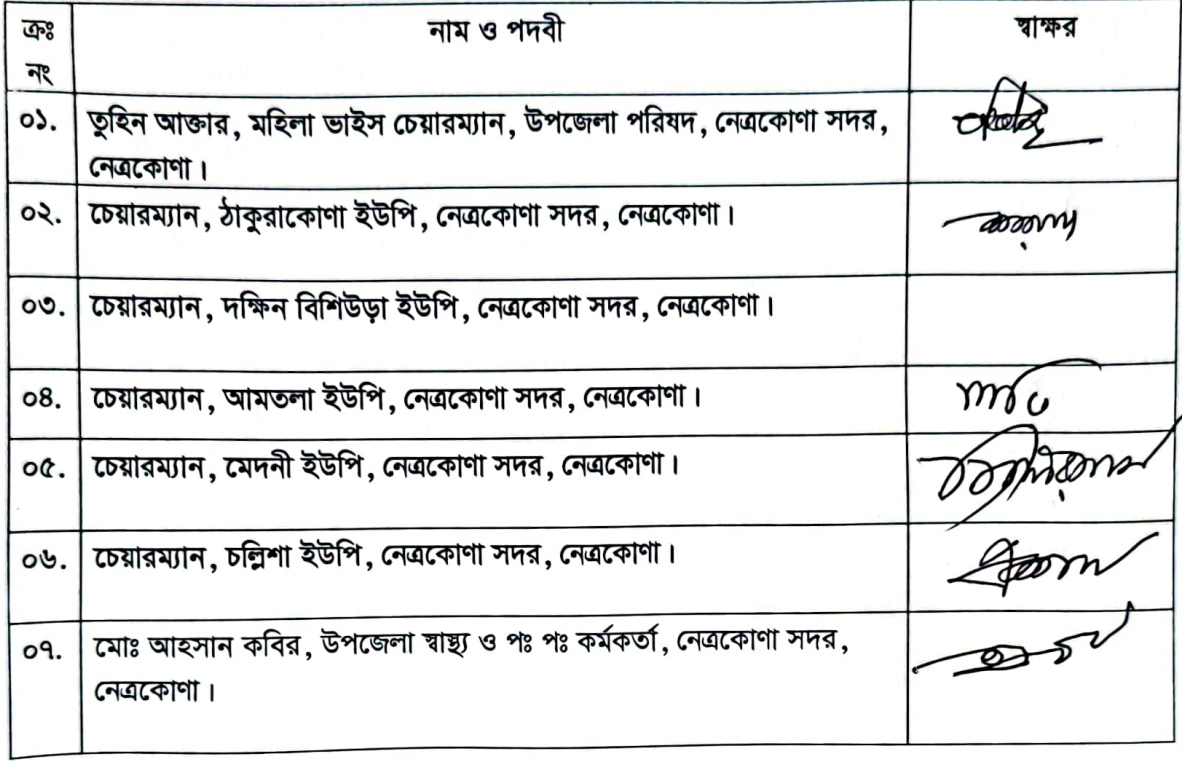 ক্রঃ নং নাম ও পদবী স্বাক্ষর
০১. তুহিন আক্তার, মহিলা ভাইস চেয়ারম্যান, উপজেলা পরিষদ, নেত্রকোণা সদর,
নেত্রকোণা।
০২. চেয়ারম্যান, ঠাকুরাকোণা ইউপি, নেত্রকোণা সদর, নেত্রকোণা।
০৩. চেয়ারম্যান, দক্ষিন বিশিউড়া ইউপি, নেত্রকোণা সদর, নেত্রকোণা।
০৪. চেয়ারম্যান, আমতলা ইউপি, নেত্রকোণা সদর, নেত্রকোণা।
০৫. চেয়ারম্যান, মেদনী ইউপি, নেত্রকোণা সদর, নেত্রকোণা।
০৬. চেয়ারম্যান, চল্লিশা ইউপি, নেত্রকোণা সদর, নেত্রকোণা।
০৭. মোঃ আহসান কবির, উপজেলা স্বাস্থ্য ও পঃ পঃ কর্মকর্তা, নেত্রকোণা সদর,
নেত্রকোণা।